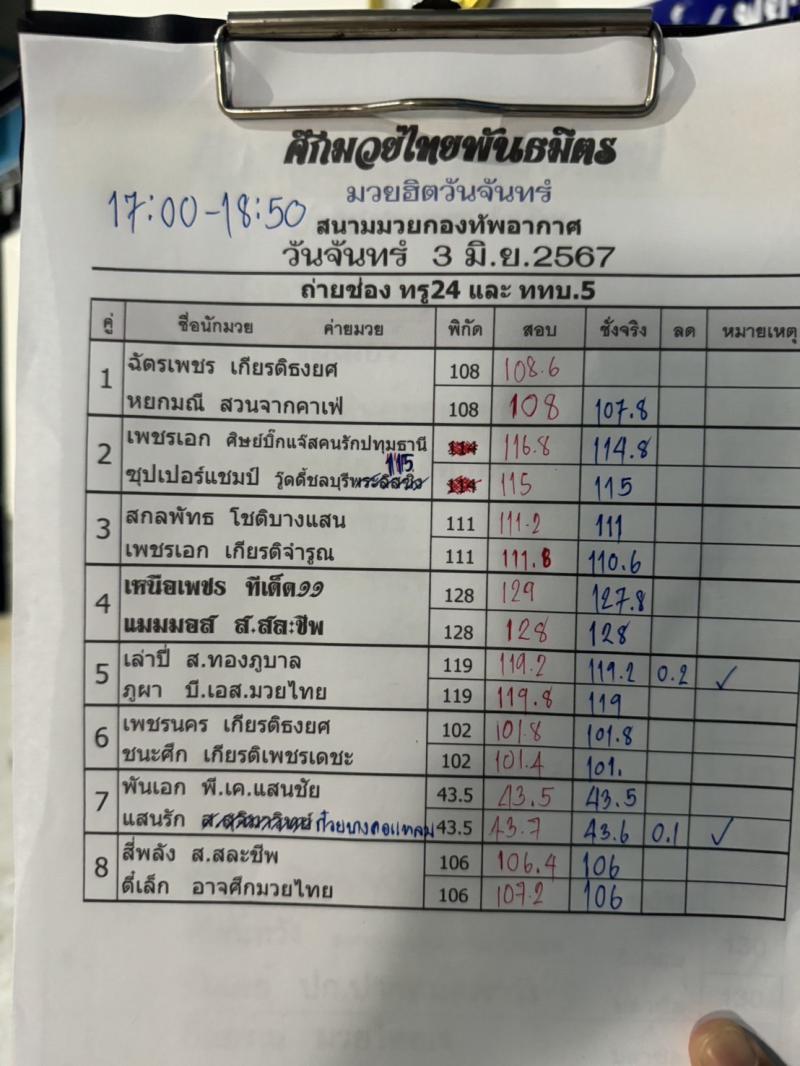 ศึกมวยไทยพันธมิตร
มวยฮิตวันจันทร์
17:00-18:50
สนามมวยกองทัพอากาศ
วันจันทร์ 3 มิ.ย.2567
ถ่ายช่อง ทรู24 และ ททบ.5
คู่ ชื่อนักมวย ค่ายมวย พิกัด สอบ ชั่งจริง ลด หมายเหตุ
1 ฉัตรเพชร เกียรติธงยศ 108 108.6
หยกมณี สวนจากคาเฟ่ 108 108 107.8
2 เพชรเอก ศิษย์บิ๊กแจ๊สคนรักปทุมธานี 114 116.8 114.8
115
ซุปเปอร์แชมป์ วู๊ดดี้ชลบุรี 114 115 115
3 สกลพัทธ โชติบางแสน 111 111.2 111
เพชรเอก เกียรติจำรูณ 111 111.8 110.6
4 เหนือเพชร ทีเด็ด99 128 129 127.8
แมมมอส ส.สละชีพ 128 128 128
5 เล่าปี่ ส.ทองภูบาล 119 119.2 119.2 0.2 ✓
ภูผา บี.เอส.มวยไทย 119 119.8 119
6 เพชรนคร เกียรติธงยศ 102 101.8 101.8
ชนะศึก เกียรติเพชรเดชะ 102 101.4 101.
7 พันเอก พี.เค.แสนชัย 43.5 43.5 43.5
แสนรัก ก๋วยบางคอแหลม 43.5 43.7 43.6 0.1 ✓
8 สี่พลัง ส.สละชีพ 106 106.4 106
ตี๋เล็ก อาจศึกมวยไทย 106 107.2 106